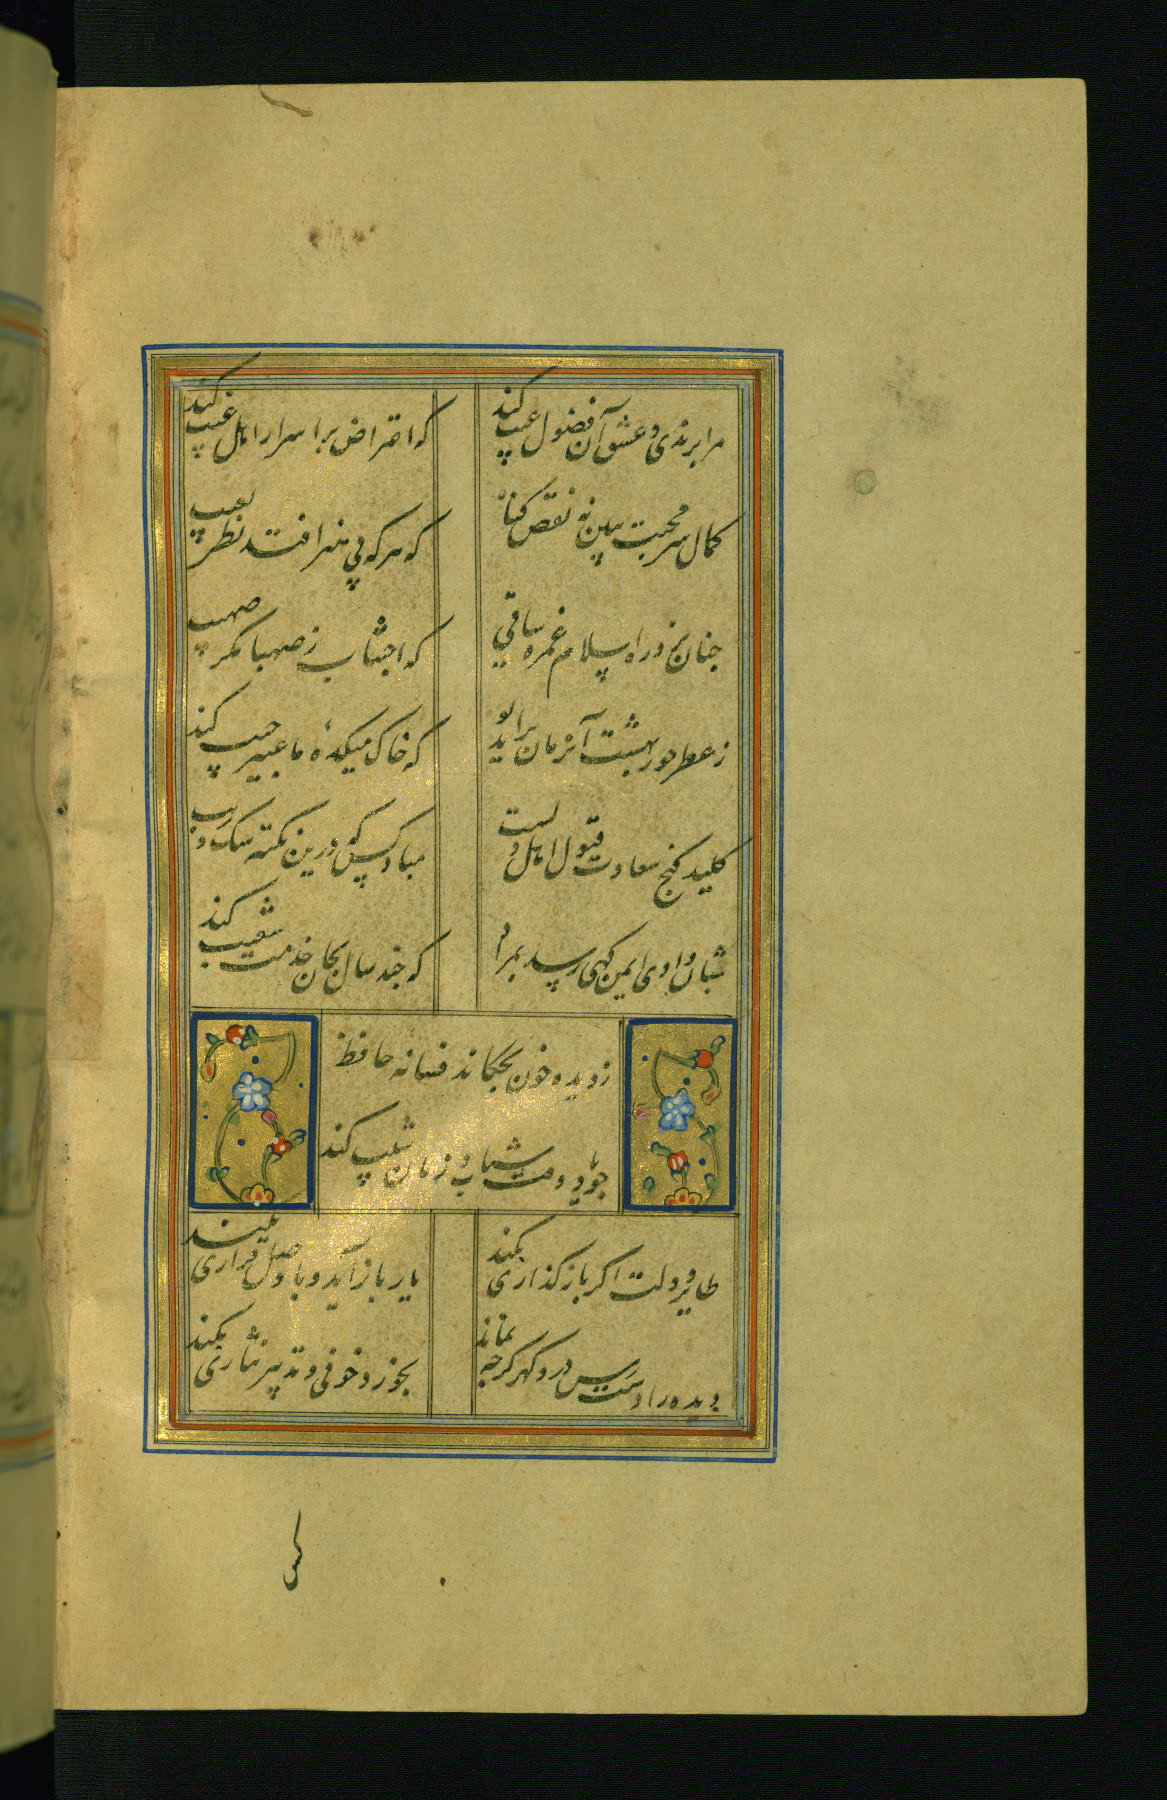 مرا برندی و عشق آن فضول عیب کند
که اعتراض بر اسرار اهل غیب کند
کمال سر محبت ببین نه نقص کناه
که هر که بی هنر افتد نظر بعیب
چنان بزد ره اسلام غمزه ساقی
که اجتناب ز صهبا مکر صهیب
ز عطر حور بهشت آنزمان برآید بو
که خاک میکدهٔ ما عبیر جیب کند
کلید کنج سعادت قبول اهل دلست
مباد کس که درین نکته شک و ریب
شبان وادی ایمن کهی رسد بمراد
که چند سال بجان خدمت شعیب کند
ز دیده خون بچکاند فسانه حافظ
جو یاد وقت شباب و زمان شیب کند
طایر دولت اکر باز کذاری بکند
یار باز آید و با وصل قراری بکند
دیده را دسترس در و کهر کرچه نماند
بخورد خونی و تدبیر نثاری بکند
کس